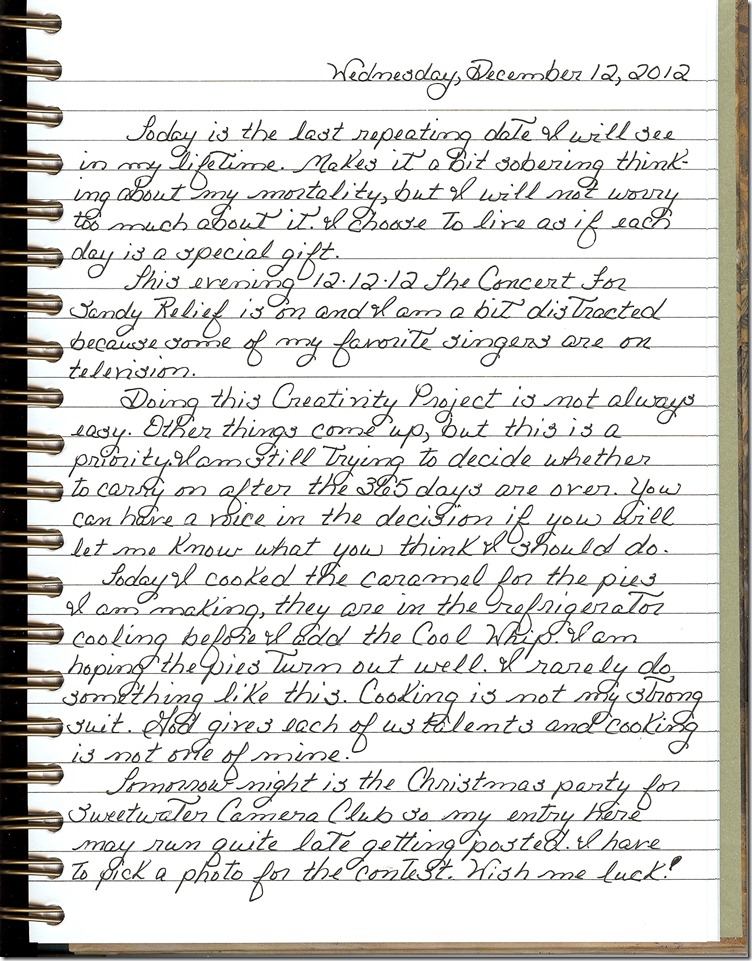 Wednesday, December 12, 2012
Today is the last repeating date I will see
in my lifetime. Makes it a bit sobering think-
ing about my mortality, but I will not worry
too much about it. I choose to live as if each
day is a special gift.
This evening 12.12.12 The Concert For
Sandy Relief is on and I am a bit distracted
because some of my favorite singers are on
television.
Doing this Creativity Project is not always
easy. Other things come up, but this is a
priority. I am still trying to decide whether
to carry on after the 365 days are over. You
can have a voice in the decision if you will
let me know what you think I should do.
Today I cooked the caramel for the pies
I am making, they are in the refrigerator
cooling before I add the Cool Whip. I am
hoping the pies turn out well. I rarely do
something like this. Cooking is not my strong
suit. God gives each of us talents and cooking
is not one of mine.
Tomorrow night is the Christmas party for
Sweetwater Camera Club so my entry here
may run quite late getting posted. I have
to pick a photo for the contest. Wish me luck!